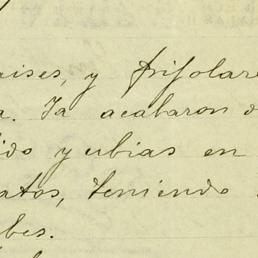 aises, y frijolare
a. Ya acabaron d
ido yerbias en
atos, teniendo
bes.